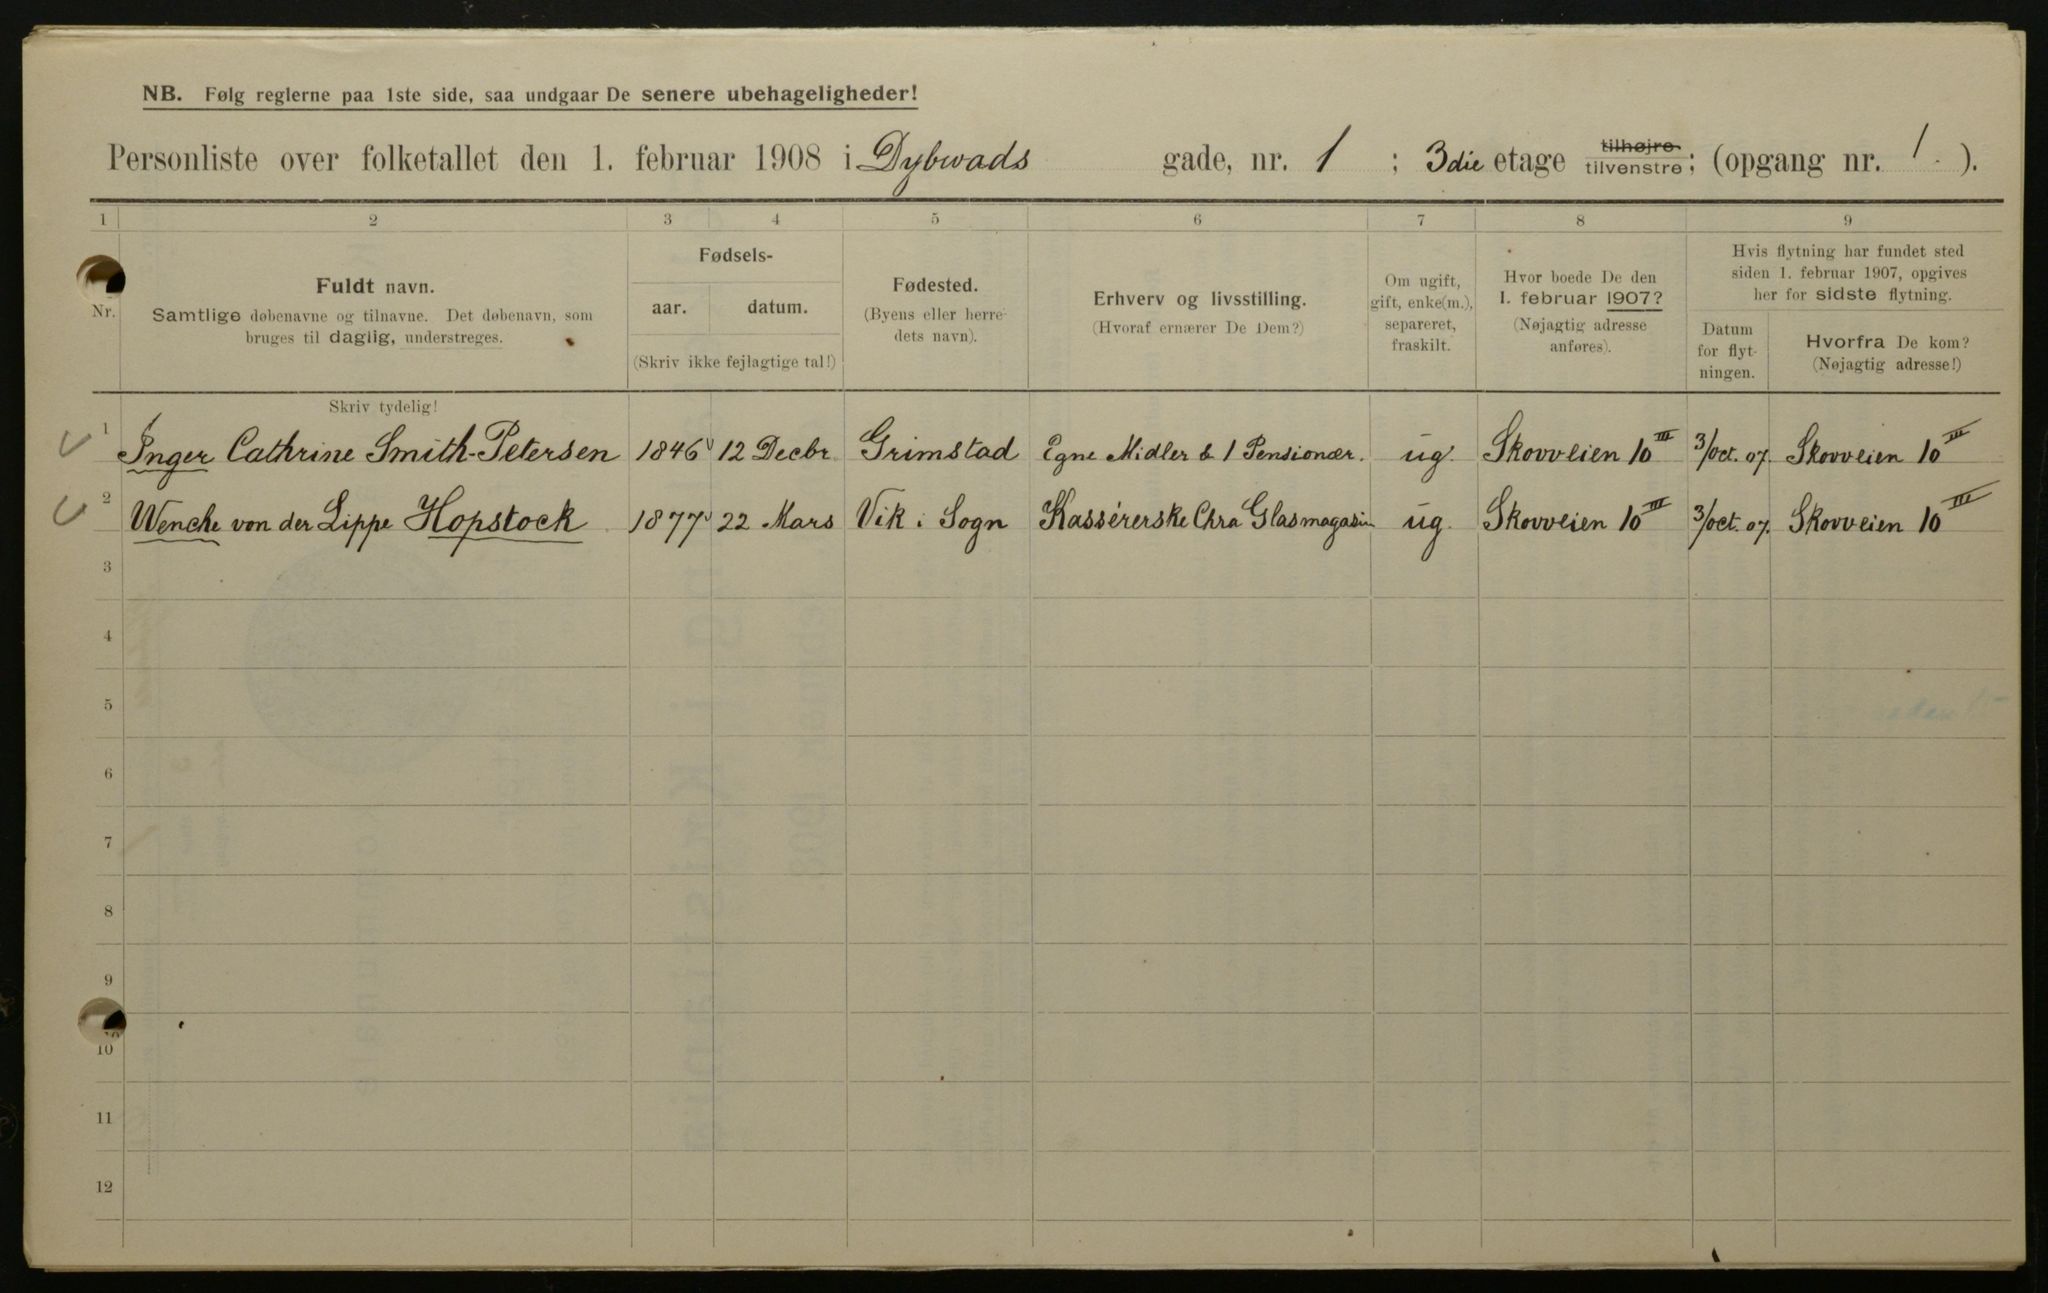 NB. Følg reglerne paa 1ste side, saa undgaar De senere ubehageligheder!
Personliste over folketallet den 1. februar 1908 i Dybwads gade, nr. 1 ; 3die etage tilhøjre tilvenstre; (opgang nr. 1. ).
1 2 3 4 5 6 7 8 9
Nr.
Fuldt navn.
Samtlige døbenavne og tilnavne. Det døbenavn, som
bruges til daglig, understreges.
Fødsels-
aar. datum.
(Skriv ikke fejlagtige tal!)
Fødested.
(Byens eller herre-
dets navn).
Erhverv og livsstilling.
(Hvoraf ernærer De Dem?)
Om ugift,
gift, enke(m.),
separeret,
fraskilt.
Hvor boede De den
1. februar 1907?
(Nøjagtig adresse
anføres).
Hvis flytning har fundet sted
siden 1. februar 1907, opgives
her for sidste flytning.
Datum
for flyt-
ningen.
Hvorfra De kom?
(Nøjagtig adresse!)
Skriv tydelig!
1 Inger Cathrine Smith-Petersen 1846 12 Decbr. Grimstad Egne Midler & 1 Pensionær. ug. Skovveien 10 III 3/oct. 07. Skovveien 10 III
2 Wenche von der Lippe Hopstock 1877 22 Mars Vik i Sogn Kassérerske Chra Glasmagasin ug. Skovveien 10 III 3/oct. 07. Skovveien 10 III
3
4
5
6
7
8
9
10
11
12